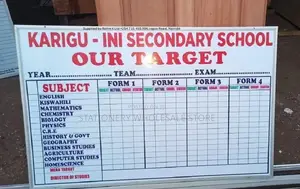 KARIGU - INI SECONDARY SCHOOL
OUR TARGET
YEAR TEAM EXAM
SUBJECT FORM 1 FORM 2 FORM 3 FORM 4
ENGLISH
KISWAHILI
MATHEMATICS
CHEMISTRY
BIOLOGY
PHYSICS
C.R.E
HISTORY & GOVT
GEOGRAPHY
BUSINESS STUDIES
AGRICULTURE
COMPUTER STUDIES
HOMESCIENCE
MEAN TARGET
DIRECTOR OF STUDIES
STATIONERYWHOLESALESTORE